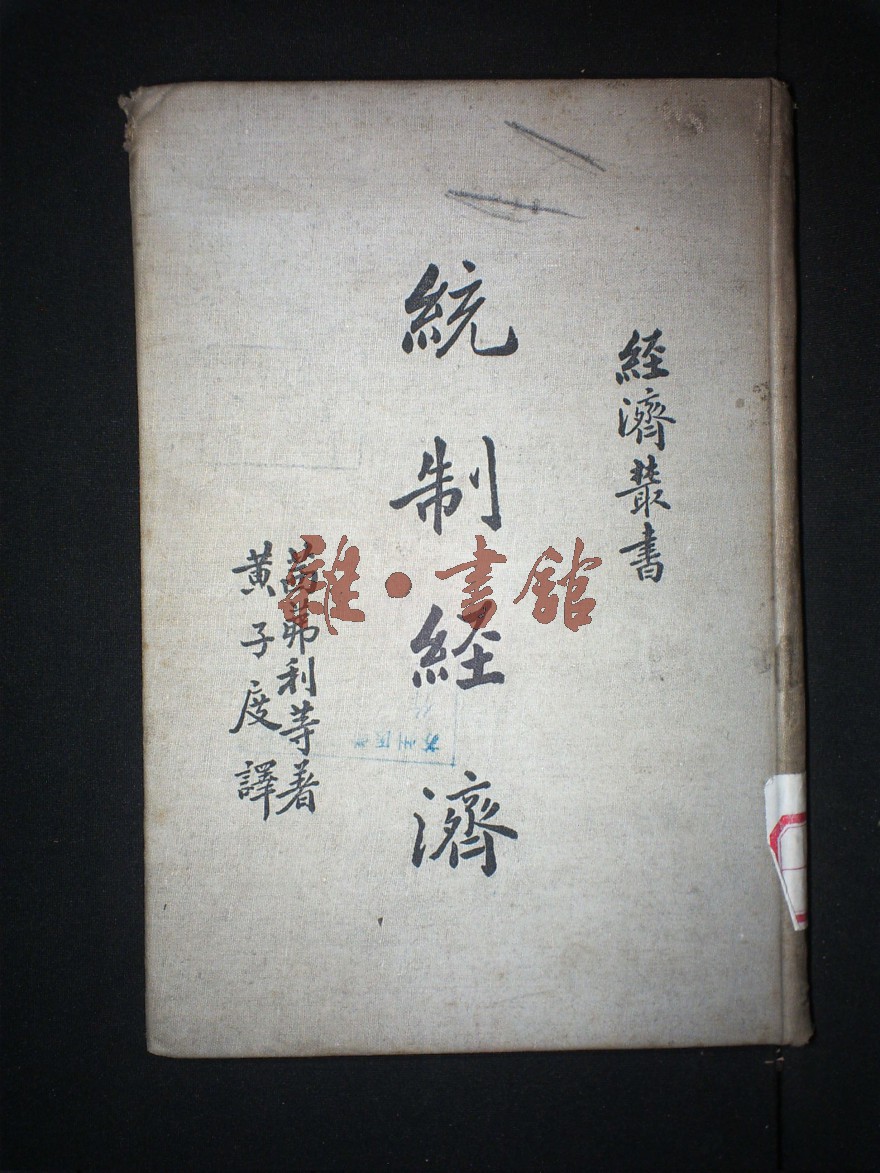 經濟叢書
統制經濟
茀利等著
黃子度譯
雜·書館